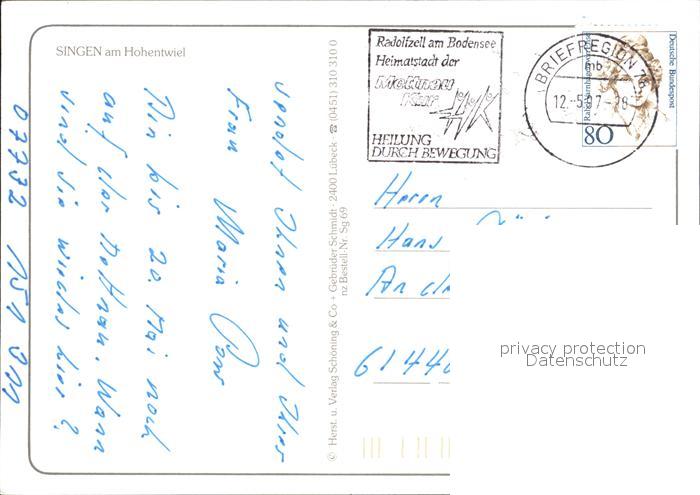 SINGEN am Hohentwiel
sendet Ihnen und Ihrer
Frau Maria
Bin bis 20. Mai noch
auf der Mettnau. Wann
sind Sie wieder hier?
07732 151 311
© Herst. u. Verlag Schöning & Co + Gebrüder Schmidt · 2400 Lübeck ☎ (0451) 310 310 0
nz Bestell-Nr. Sg 69
Radolfzell am Bodensee
Heimatstadt der
Mettnau
Kur
HEILUNG
DURCH BEWEGUNG
BRIEFREGION 78
mb
12.-5.97-20
Deutsche Bundespost
80
Herrn
Hans
An d
6144
privacy protection
Datenschutz